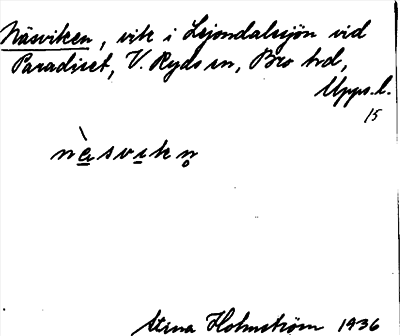 Näsviken, vik i Lejondalssjön vid
Paradiset, V. Ryds sn, Bro hd,
Upps. l.
15
nèsvikn̥
Stina Holmström 1936